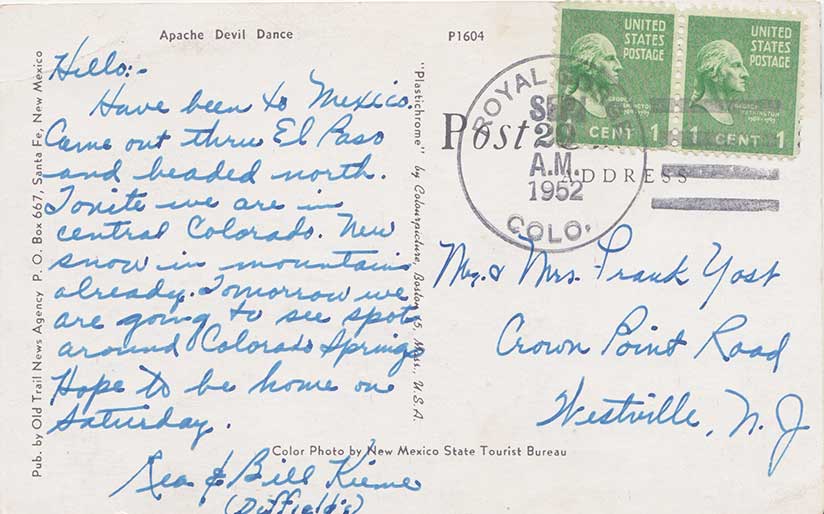 Apache Devil Dance
P1604
Hello:-
Have been to Mexico.
Came out thru El Paso
and headed north.
Tonite we are in
central Colorado. New
snow in mountains
already. Tomorrow we
are going to see spots
around Colorado Springs
Hope to be home on
Saturday.
& Bill
(Duffield's)
Pub. by Old Trail News Agency P. O. Box 667, Santa Fe, New Mexico
"Plastichrome" by Colourpicture, Boston 15, Mass., U.S.A.
Color Photo by New Mexico State Tourist Bureau
UNITED
STATES
POSTAGE
GEORGE
WASHINGTON
1789-1797
1 CENT 1
UNITED
STATES
POSTAGE
GEORGE
WASHINGTON
1789-1797
1 CENT 1
ROYAL
SEP
A.M.
1952
COLO.
Post
ADDRESS
Mr. & Mrs. Frank Yost
Crown Point Road
Westville, N. J